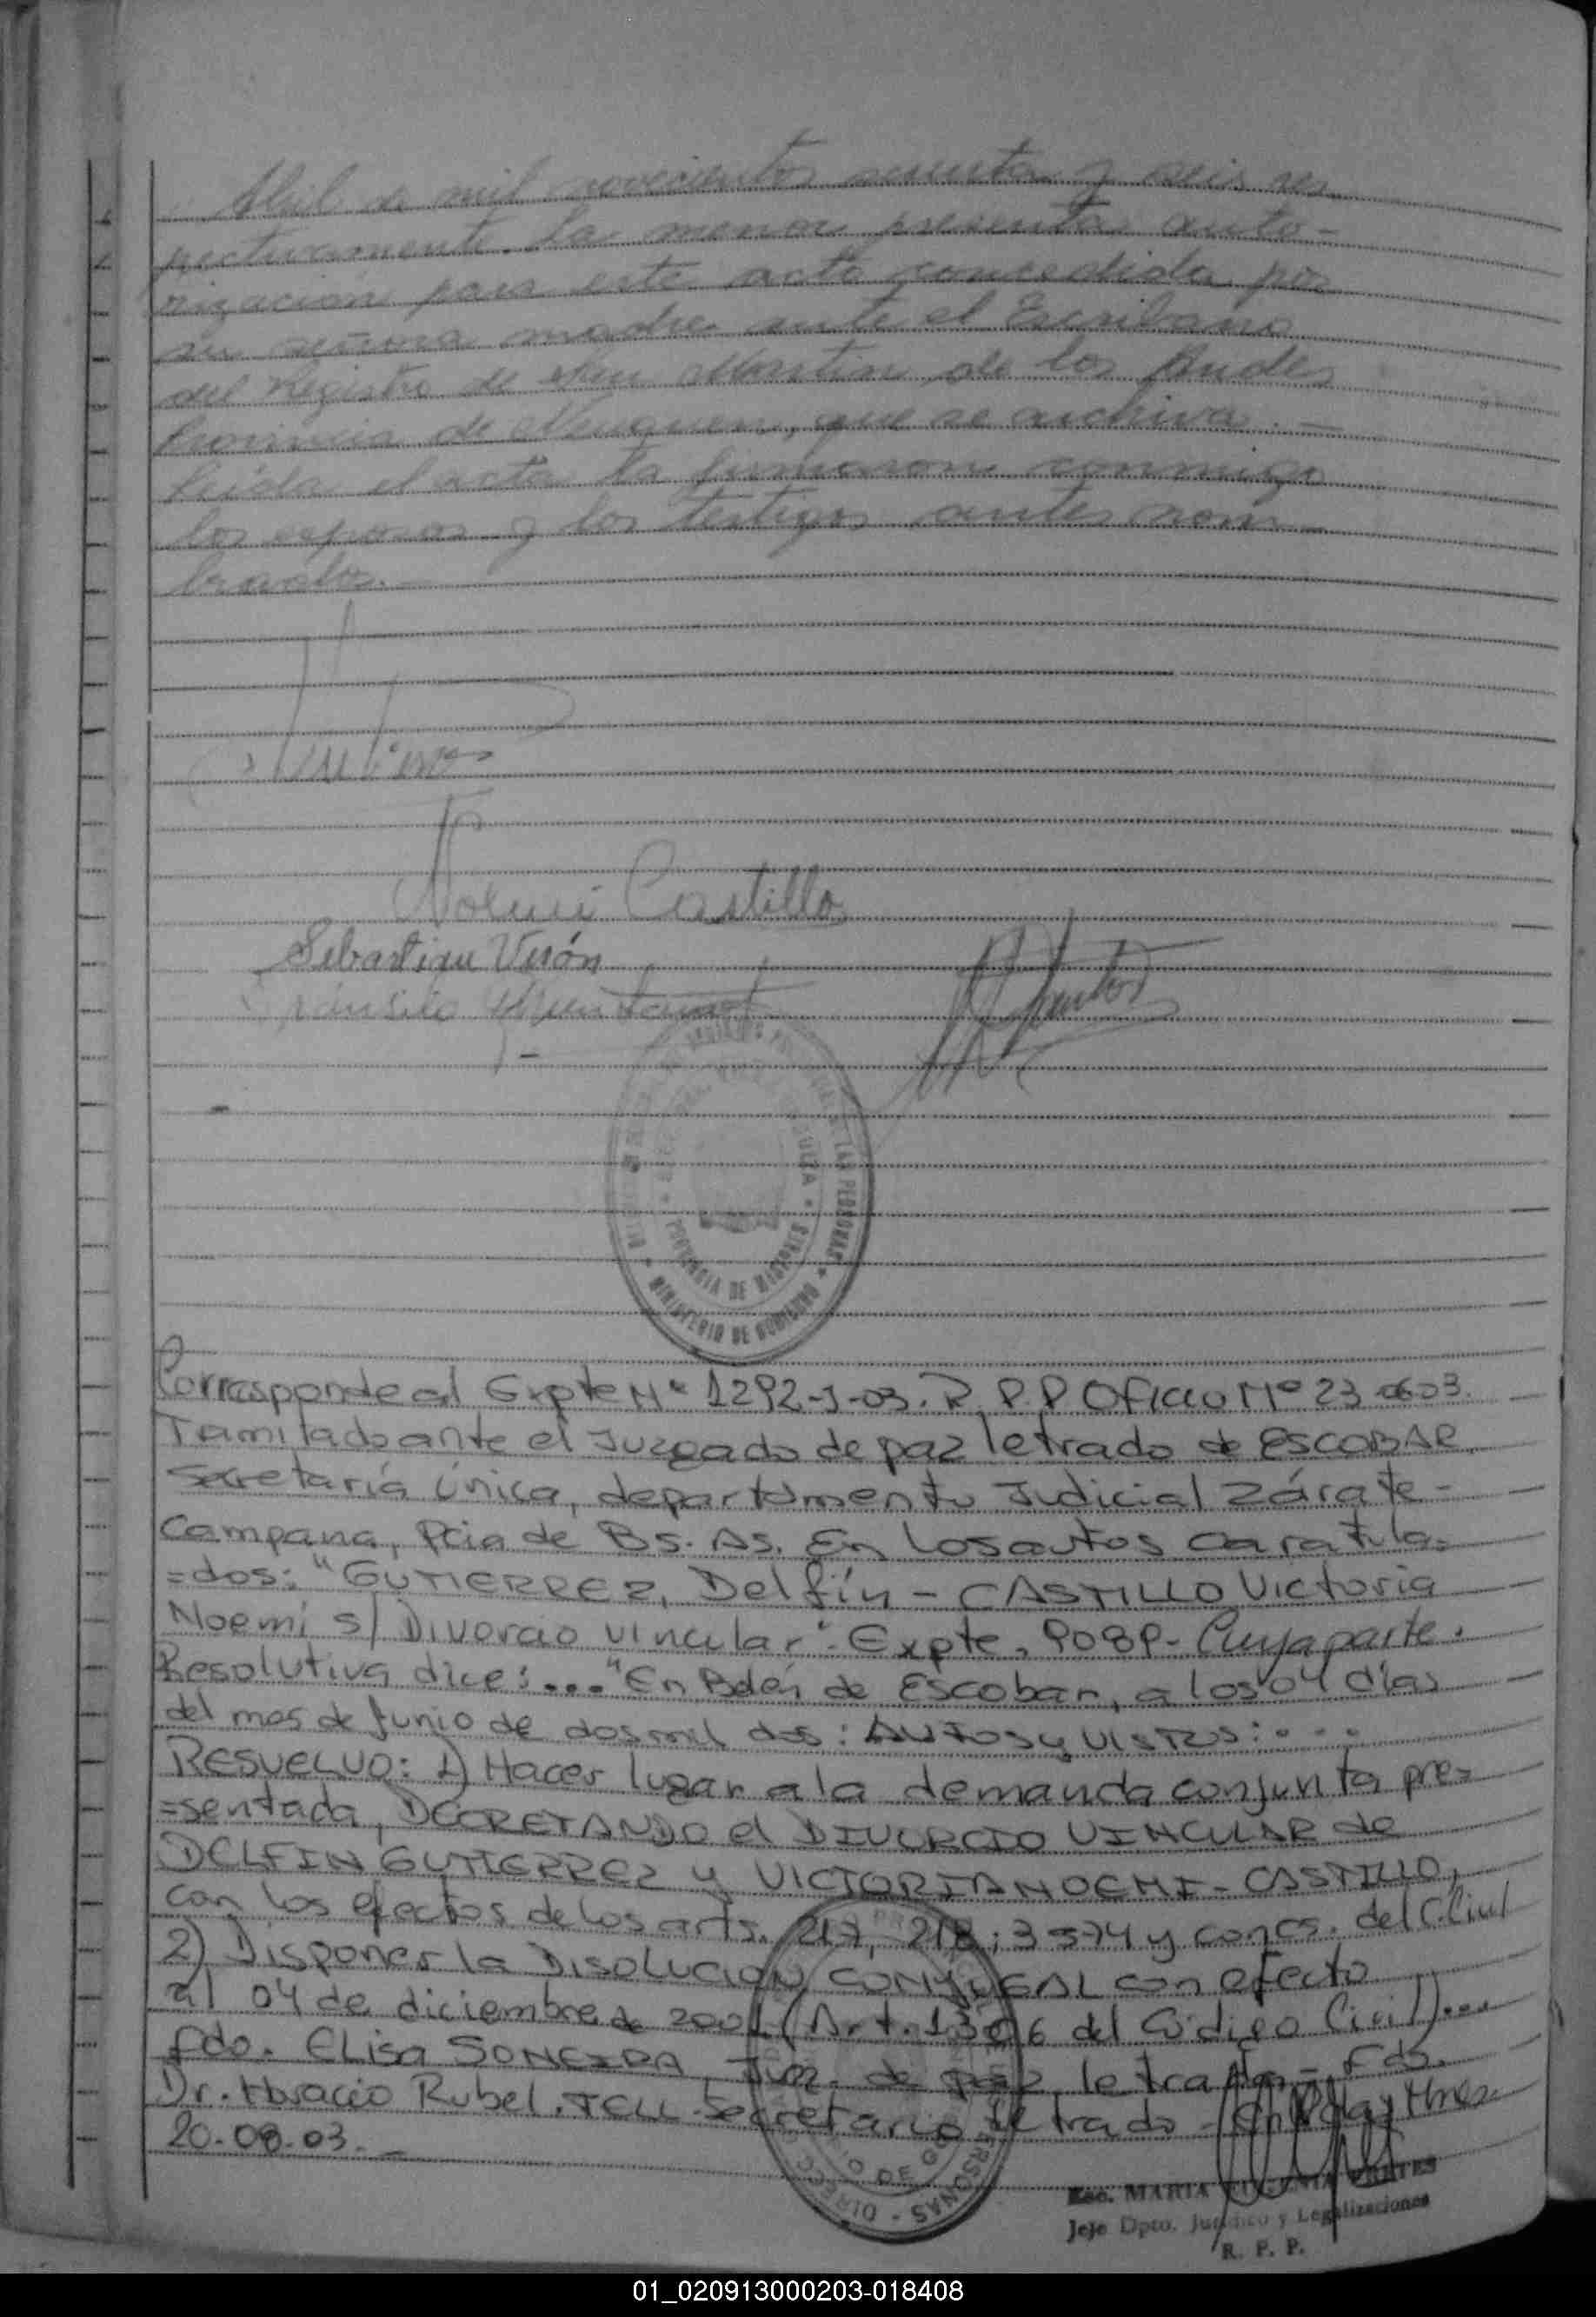 Abril de mil novecientos sesenta y seis res
pectivamente. La menor presenta auto-
rización para este acto concedida por
su señora madre ante el Escribano
del Registro de San Martin de los Andes
Provincia de Neuquen, que se archiva. —
Leída el acta la firmaron conmigo
los esposos y los testigos antes nom-
brados. —
Noemi Castillo
Sebastian Verón
Corresponde al Expte Nº 1292-J-03. R.P.P Oficio Nº 23-06-03.
Tamitado ante el Juzgado de paz letrado de ESCOBAR
Secretaría Única, departamento Judicial Zárate-
Campana, Pcia de Bs. As. En los autos caratula=
=dos: "GUTIERREZ, Delfín - CASTILLO Victoria
Noemí s/ Divorcio vincular". Expte. 9089- Cuya parte.
Resolutiva dice:... "En Belén de Escobar, a los 04 días
del mes de Junio de dos mil dos: AUTOS y VISTOS:...
RESUELVO: 1) Hacer lugar a la demanda conjunta pre=
=sentada, DECRETANDO el DIVORCIO VINCULAR de
DELFIN GUTIERREZ y VICTORIA NOEMI - CASTILLO,
con los efectos de los arts. 217, 218; 3574 y concs. del C. Civil
2) Disponer la DISOLUCION CONYUGAL con efecto
al 04 de diciembre de 2001 (Art. 1306 del Código Civil)...
fdo. ELisa SONEIRA, Juez. de paz letrado. - Fdo.
Dr. Horacio Rubel. Secretario letrado -
20-08-03. —
PROVINCIA DE MISIONES
MINISTERIO DE GOBIERNO
LAS PERSONAS
Esc. MARIA EUGENIA
Jefe Dpto. Jurídico y Legalizaciones
R. P. P.
01_020913000203-018408